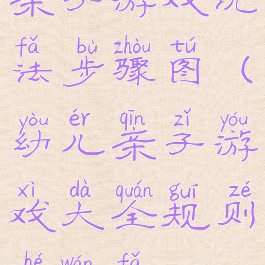 亲子游戏玩
fǎ bù zhòu tú
法步骤图（
yòu ér qīn zǐ yóu
幼儿亲子游
xì dà quán guī zé
戏大全规则
hé wán fǎ